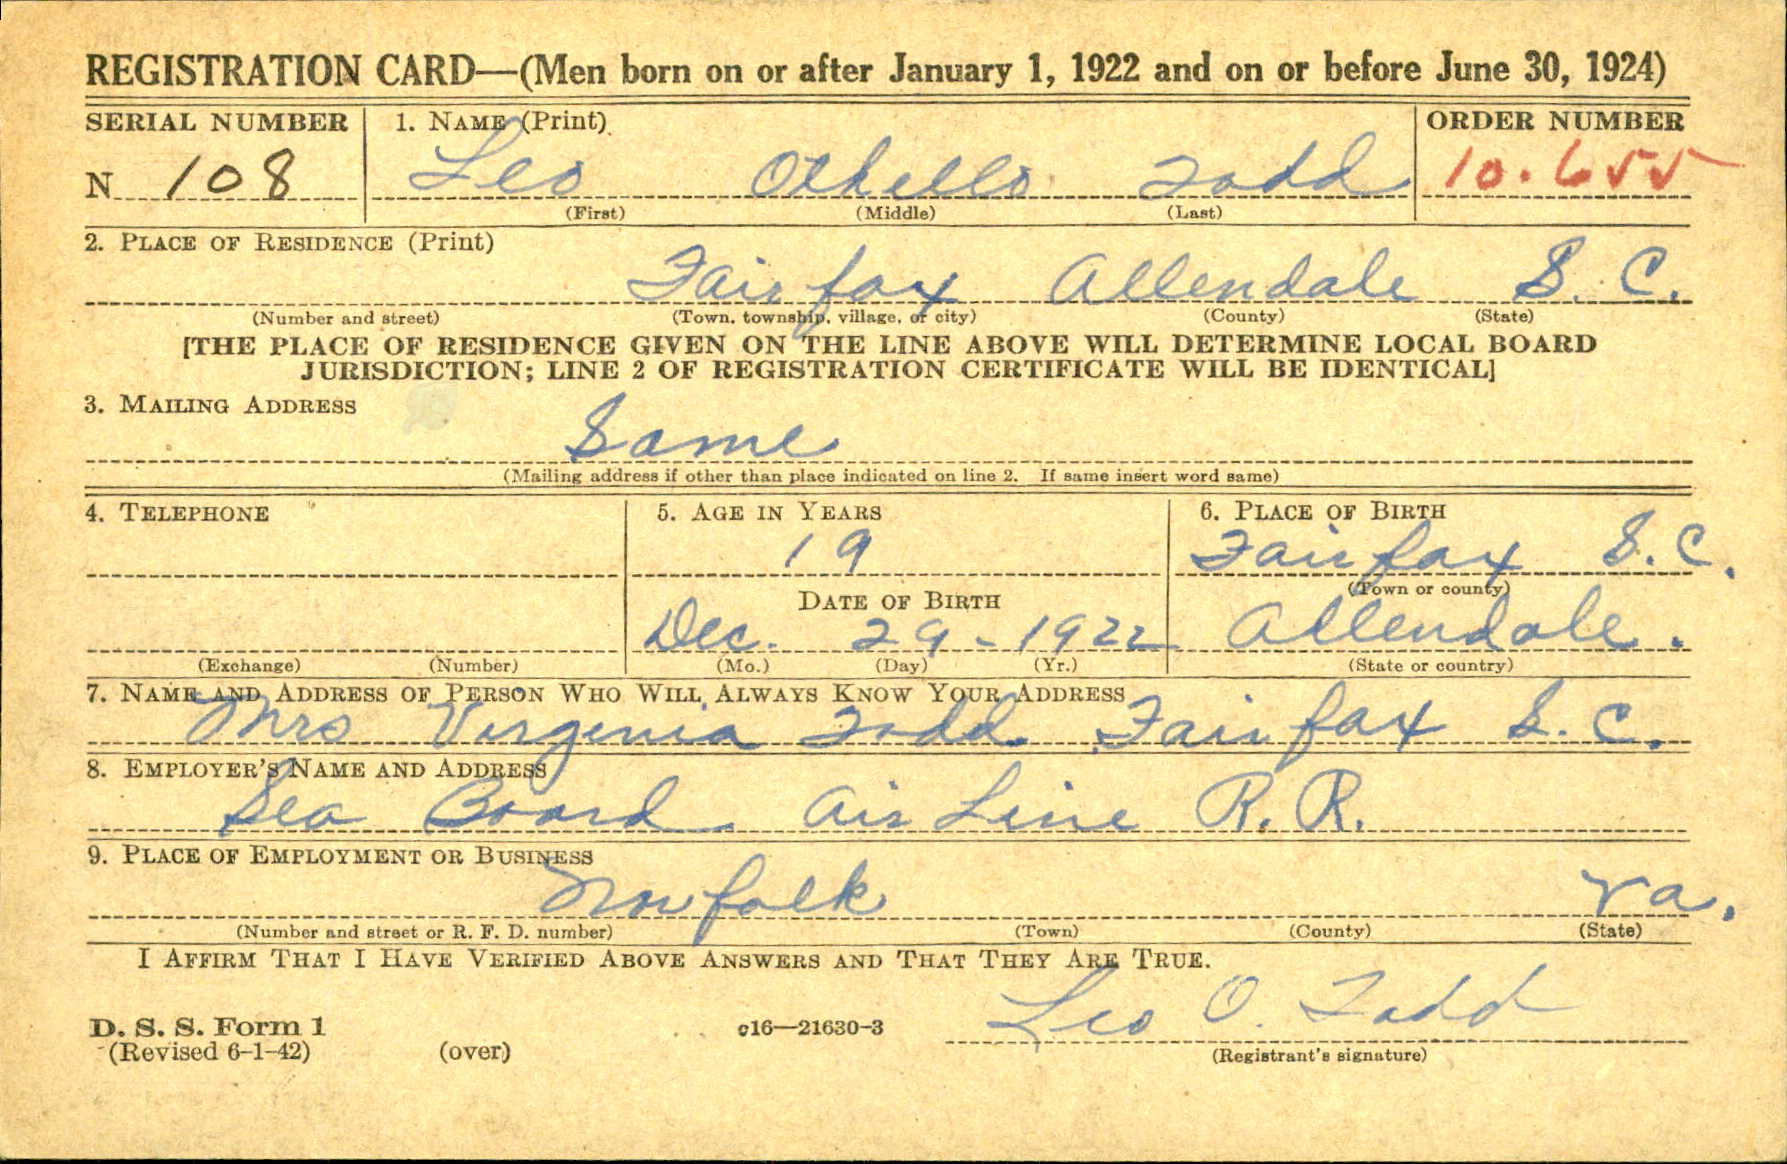 REGISTRATION CARD—(Men born on or after January 1, 1922 and on or before June 30, 1924)
SERIAL NUMBER 1. NAME (Print) ORDER NUMBER
N 108 Leo Othello Todd 10.655
(First) (Middle) (Last)
2. PLACE OF RESIDENCE (Print)
Fairfax Allendale S. C.
(Number and street) (Town, township, village, or city) (County) (State)
[THE PLACE OF RESIDENCE GIVEN ON THE LINE ABOVE WILL DETERMINE LOCAL BOARD
JURISDICTION; LINE 2 OF REGISTRATION CERTIFICATE WILL BE IDENTICAL]
3. MAILING ADDRESS
Same
(Mailing address if other than place indicated on line 2. If same insert word same)
4. TELEPHONE 5. AGE IN YEARS 6. PLACE OF BIRTH
19 Fairfax S.C.
(Town or county)
DATE OF BIRTH
Dec. 29-1922 Allendale.
(Exchange) (Number) (Mo.) (Day) (Yr.) (State or country)
7. NAME AND ADDRESS OF PERSON WHO WILL ALWAYS KNOW YOUR ADDRESS
Mrs Virginia Todd. Fairfax S. C.
8. EMPLOYER'S NAME AND ADDRESS
Sea Board. Air Line R. R.
9. PLACE OF EMPLOYMENT OR BUSINESS
Norfolk Va.
(Number and street or R. F. D. number) (Town) (County) (State)
I AFFIRM THAT I HAVE VERIFIED ABOVE ANSWERS AND THAT THEY ARE TRUE.
Leo O. Todd
D. S. S. Form 1 c16—21630-3
(Revised 6-1-42) (over) (Registrant's signature)